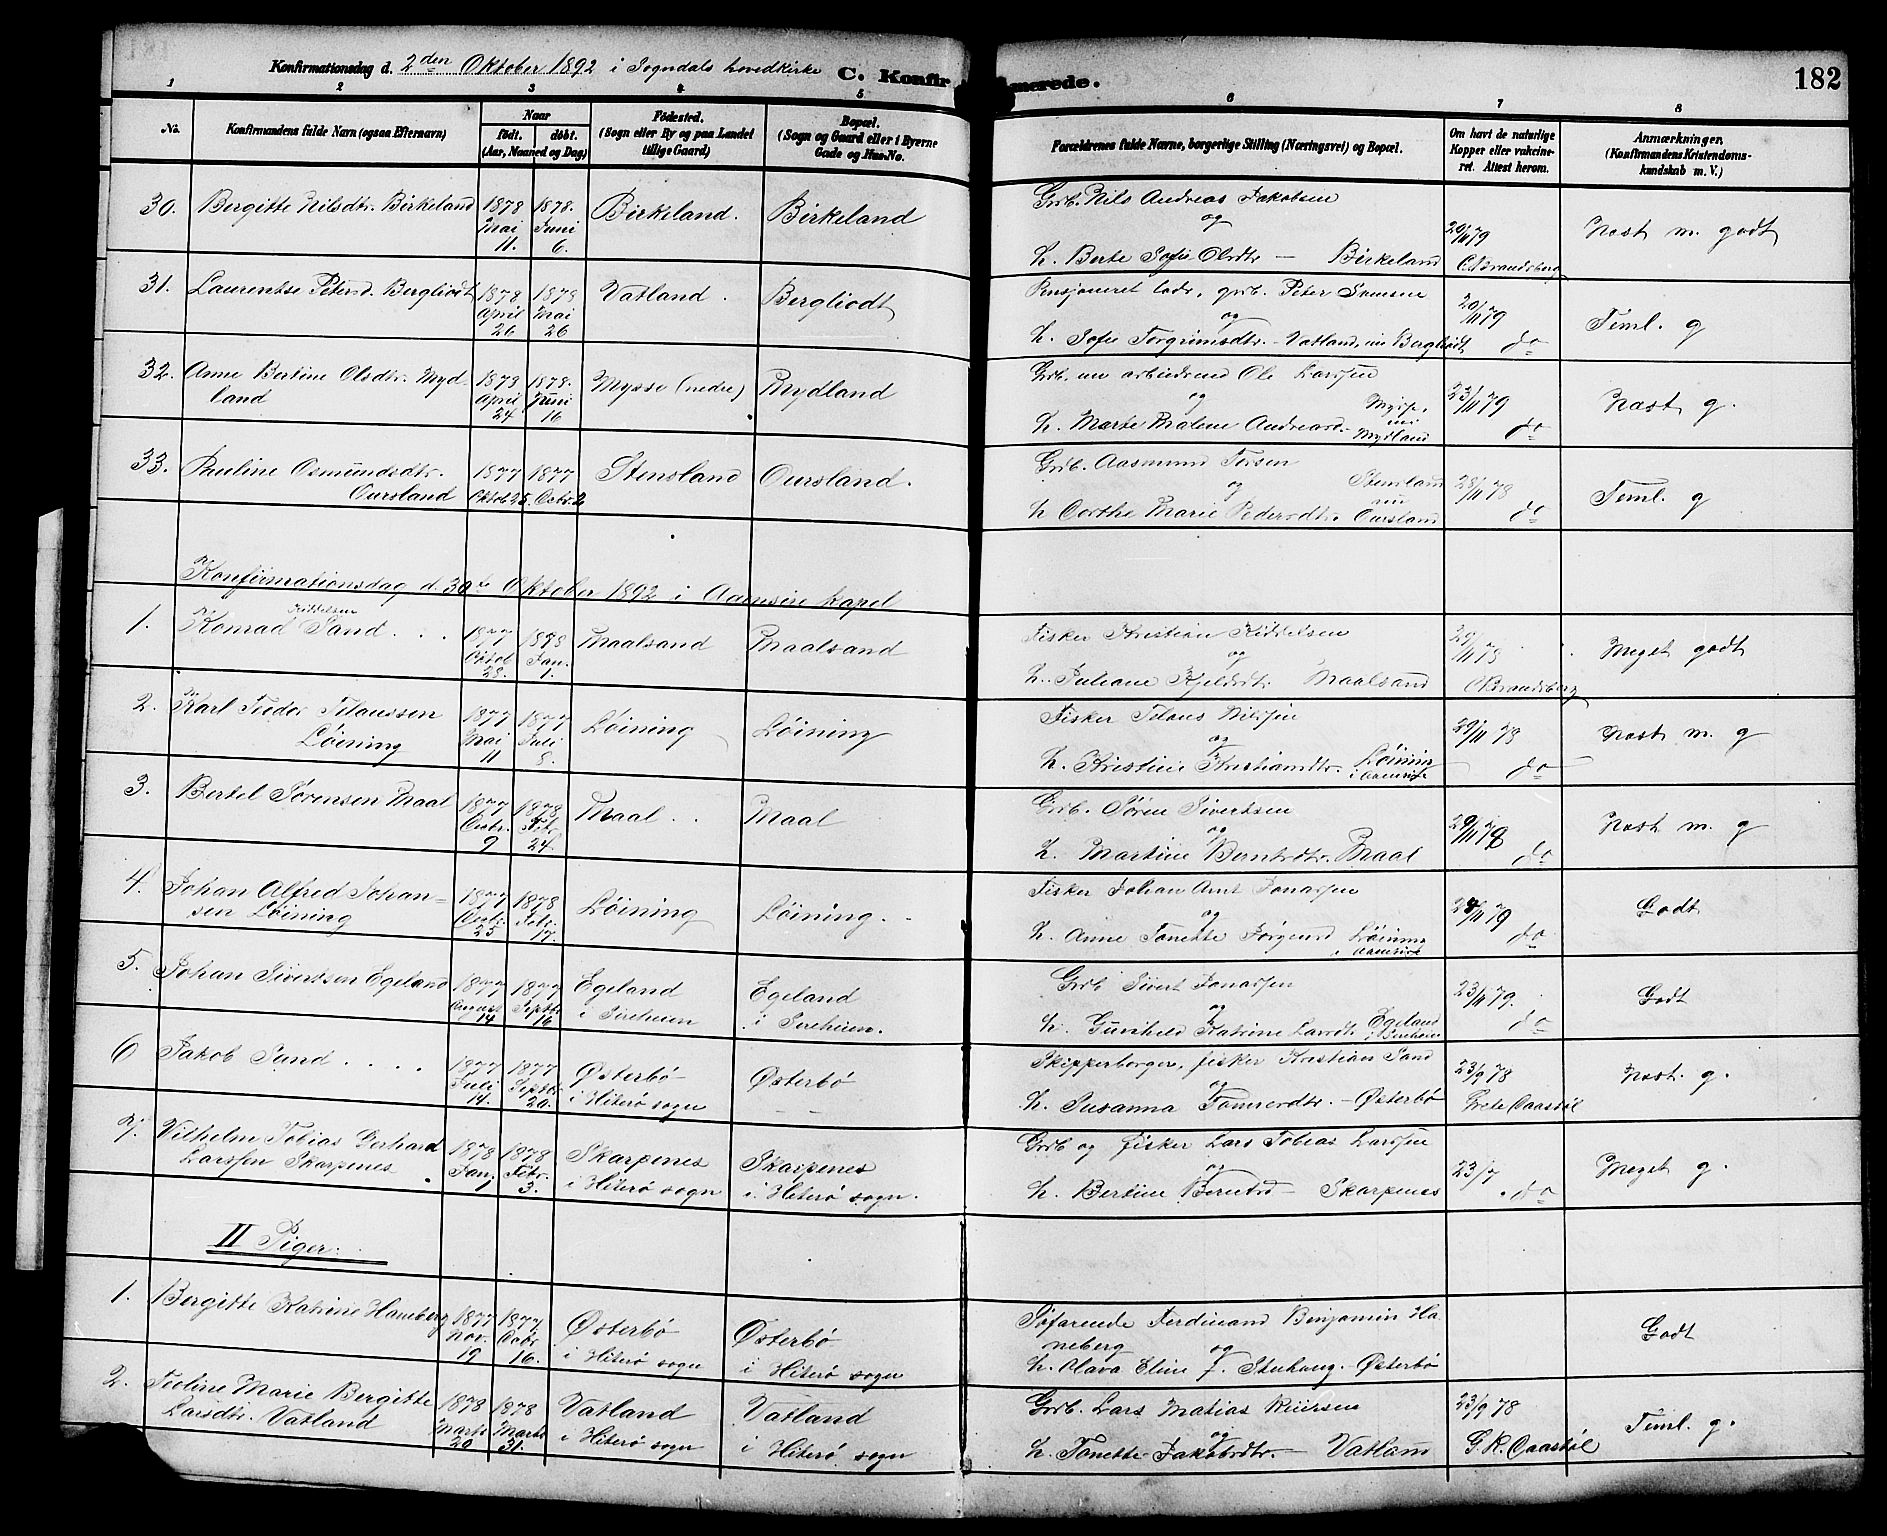 Konfirmationsdag d. 2den Oktober 1892 i Sogndals hovedkirke C. Konfirmerede. 182
1 2 3 4 5 6 7 8
No.
Konfirmandens fulde Navn (ogsaa Efternavn)
Naar
født. døbt.
(Aar, Maaned og Dag)
Fødested.
(Sogn eller By og paa Landet
tillige Gaard)
Bopæl.
(Sogn og Gaard eller i Byerne
Gade og Hus-No.
Forældrenes fulde Navne, borgerlige Stilling (Næringsvei) og Bopæl.
Om havt de naturlige
Kopper eller vakcine-
ret. Attest herom.
Anmærkninger.
(Konfirmandens Kristendoms-
kundskab m. V.)
30. Bergitte Nilsdtr. Birkeland
1878 Mai 11.
1878. Juni 6.
Birkeland.
Birkeland
Grb. Nils Andreas Jakobsen
og
h. Berte Sofie Olsdtr. — Birkeland
20/11 79
C. Brandsberg
Næst m. godt
31. Laurentse Petersd. Bergliodt
1878 April 26
1878 Mai 26
Vatland.
Bergliodt
Pensjoneret lods, grb. Peter
og
h. Sofie Torgrimsdtr. - Vatland, nu Bergliodt
20/11 79
do
Teml. g
32. Anne Bertine Olsdtr. Myd-
land
1878 April 24
1878. Juni 16
Mysse (nedre)
Mydland
Grb. nu arbeidsmd Ole Larssen
og
h. Marte Malene Andreasd. - Mysse, nu Mydland
23/11 79
do
Næst g.
33. Pauline Osmundsdtr.
Oursland
1877 Oktob. 25.
1877 Decbr. 2
Stensland
Oursland.
Grb. Aasmund Torsen
og
h. Dorthe Marie Pedersdtr. Stensland nu Oursland
28/11 78
do
Teml. g
Konfirmationsdag d. 30te Oktober 1892 i Aamsire kapel
1. Konrad Kittelsen Sand . . .
1877 Oktob 28.
1878 Jan. 1.
Maalsand
Maalsand
Fisker Kristian Kittelsen
og
h. Juliane Kjeldsdtr. Maalsand
29/11 78
C. Brandsberg
Meget godt
2. Karl Tudor Titaussen
Løining
1877 Mai 11
1877 Juli 8.
Løining
Løining
Fisker Nilsen
og
h. Kristine Kristiansdtr. Løining i Aamsire
29/11 78
do
Næst m. g
3. Bertel Sørensen Maal
1877 Decbr. 9
1878 Febr. 24.
Maal . .
Maal
Grb. Søren Sivertsen
og
h. Martine Berntsdtr. Maal
29/11 78
do
Næst m. g
4. Johan Alfred Johan-
sen Løining
1877 Decbr. 25
1878 Febr. 17.
Løining
Løining.
Fisker Johan Arnt Jonassen
og
h. Anne Tonette Jørgensd Løining i Aamsire
24/11 79
do
Godt
5. Johan Sivertsen Egeland
1877 August 14
1877 Septbr. 16
Egeland
i Sireheien
Egeland
i Sireheien.
Grb Sivert Jonassen
og
h. Gunhild Katrine Larsdtr. Egeland i Sireheien
23/11 79.
do
Godt
6 Jakob Sand . . . .
1877 Juli 14.
1877 Septbr. 20.
Østerbø
i Hiterø sogn
Østerbø
Skipperborger, fisker Kristian Sand
og
h. Susanna Tomresdtr. - Østerbø
23/9 78
Grete Aastøl
Næst. g.
7. Vilhelm Tobias Gerhard
Larssen Skarpenes
1878 Jan. 1
1878 Febr. 3.
Skarpenes
i Hiterø sogn
Skarpenes
i Hiterø sogn.
Grb og fisker Lars Tobias Larssen
og
h. Bertine Berntsd — Skarpenes
23/7
do
Meget g.
II Piger.
1. Bergitte Katrine Haneberg
1877 Nov. 19
1877 Decbr. 16.
Østerbø
i Hiterø sogn
Østerbø
i Hiterø sogn
Søfarende Ferdinand Benjamin Ha-
neberg og
h. Olava Eline f. Stuhaug. - Østerbø
Godt
2. Marie Bergitte
Larsdtr. Vatland
1878 Marts 20
1878 Marts 31.
Vatland
i Hiterø sogn
Vatland
i Hiterø sogn
Grb. Lars Matias
og
h. Tonette Jakobsdtr. — Vatland
23/9 78
G. K. Aastøl
Teml. g.